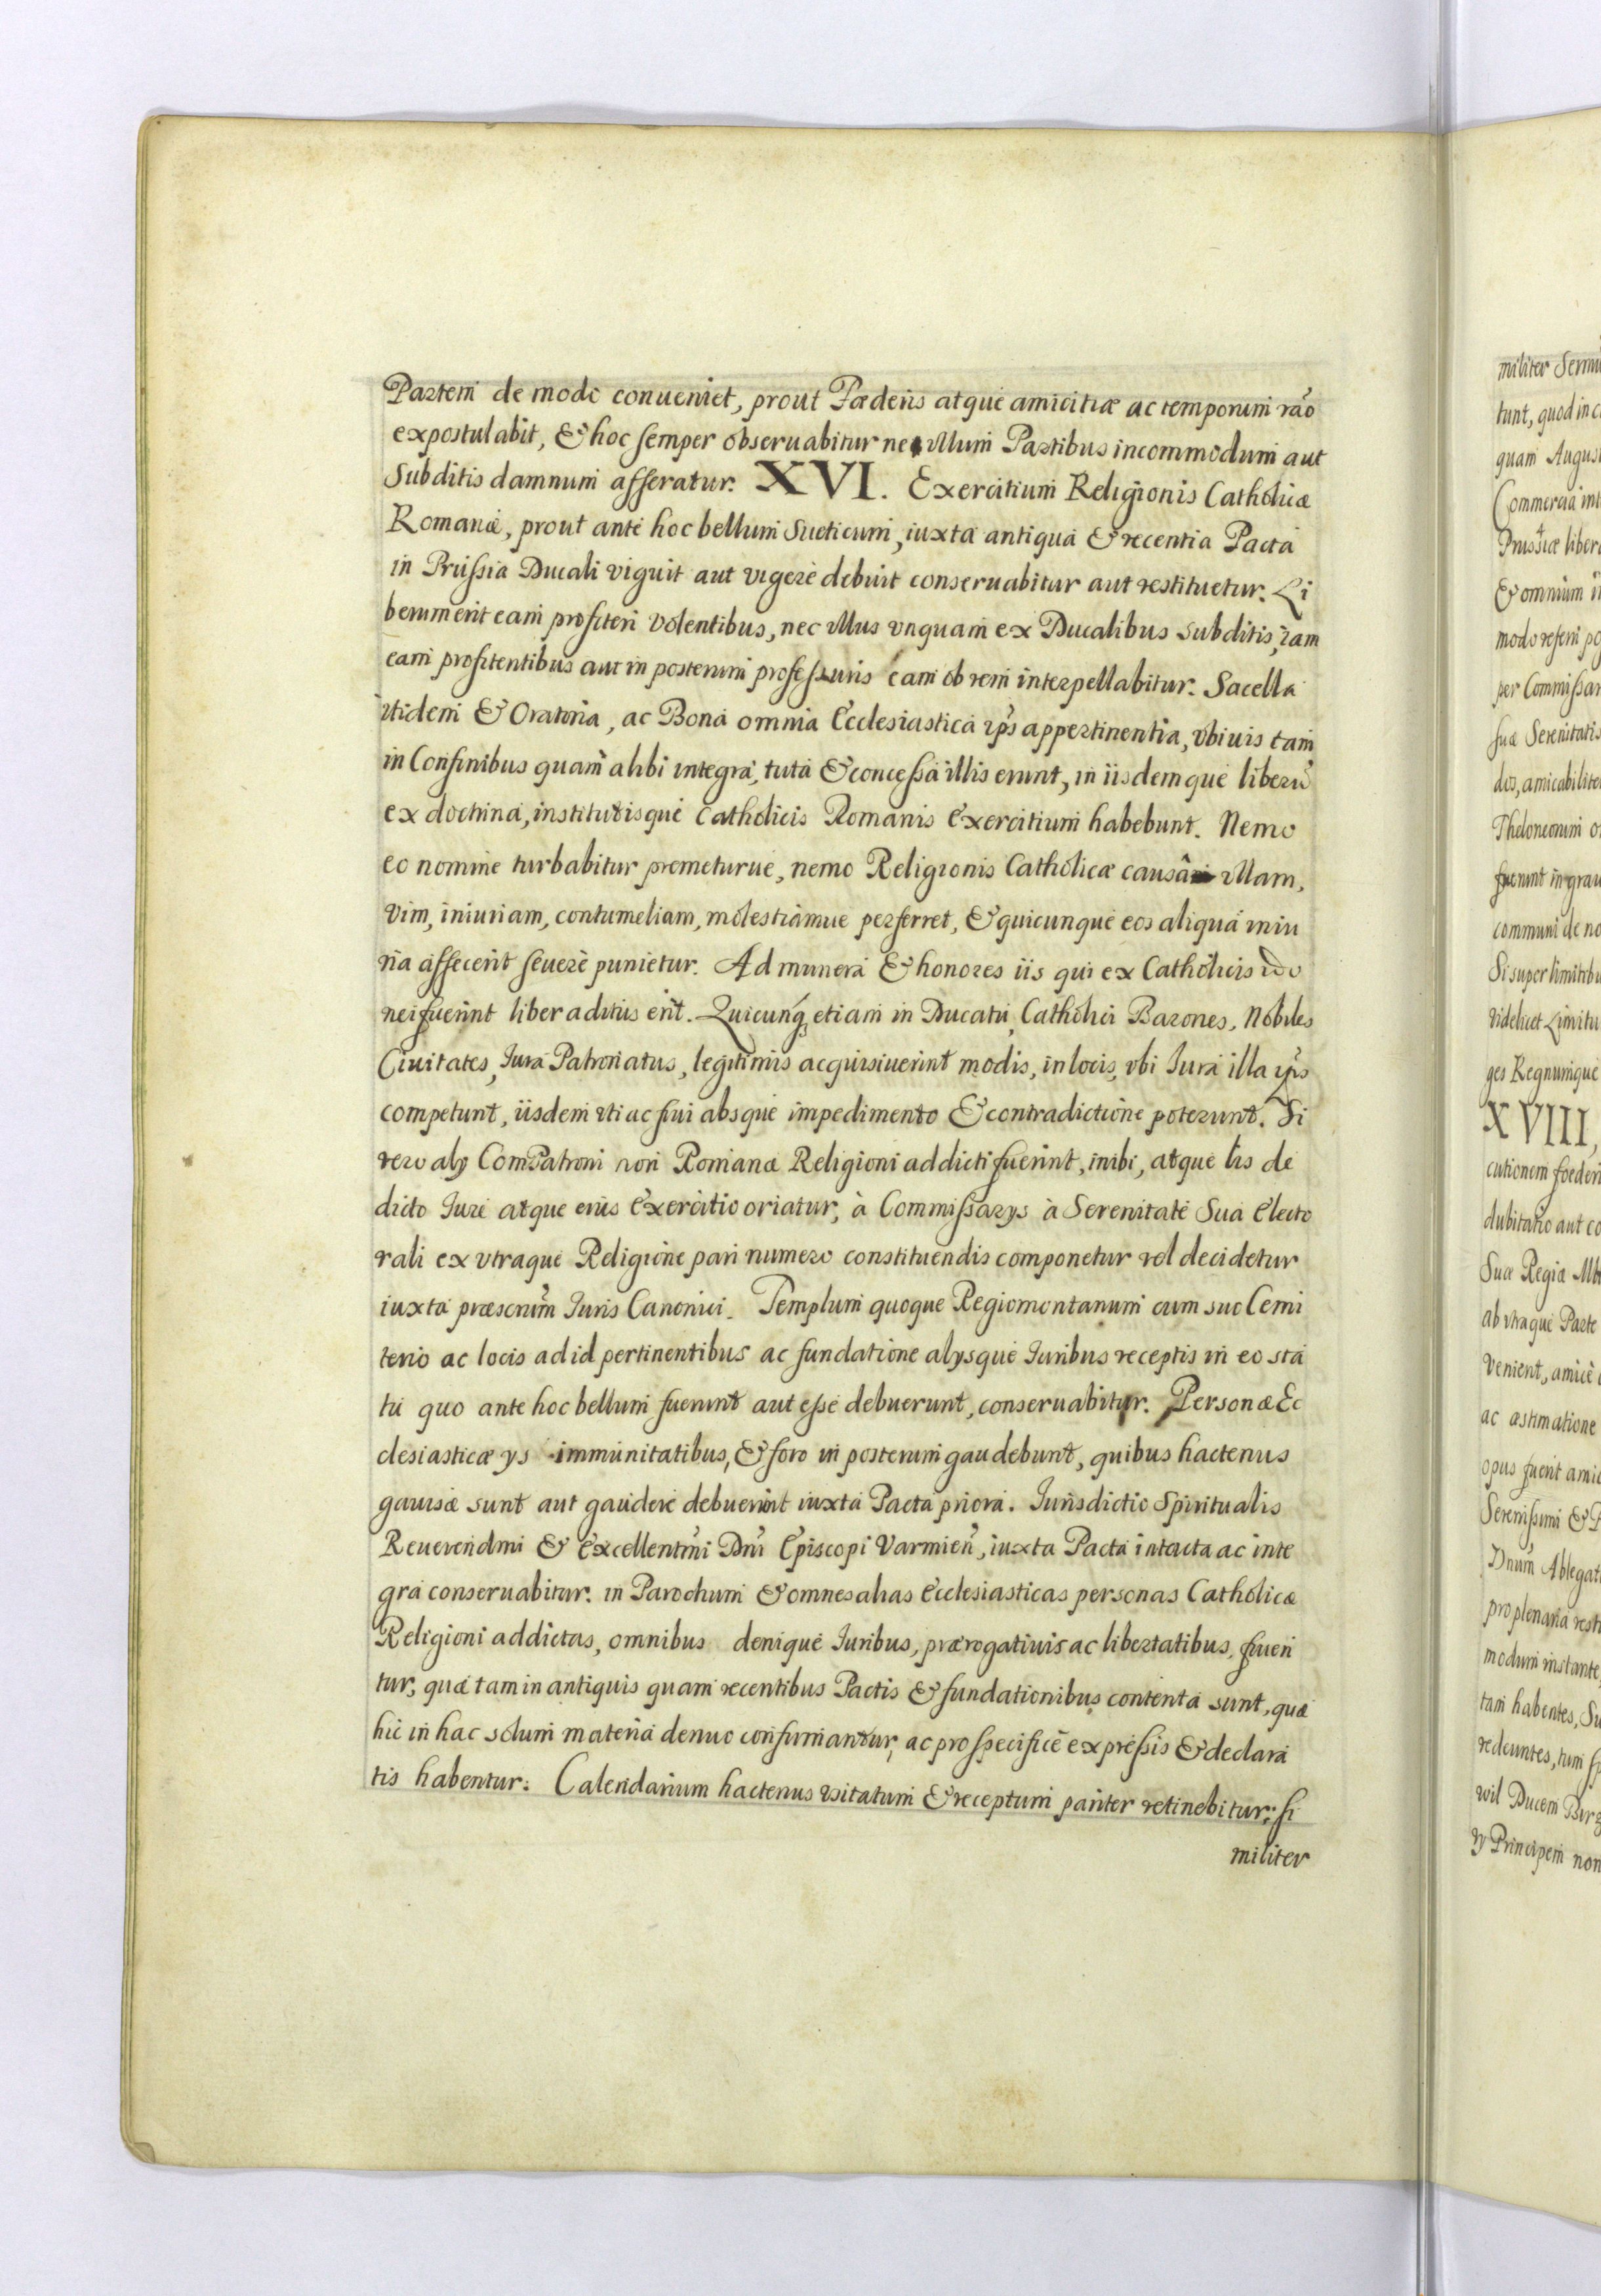 Partem de modo conueniet, prout Fœderis atque amicitiæ ac temporum rão
expostulabit, & hoc semper obseruabitur ne vllum Partibus incommodum aut
Subditis damnum afferatur. XVI. Exercitium Religionis Catholicæ
Romanæ, prout ante hoc bellum Sueticum, iuxta antiqua & recentia Pacta
in Prussia Ducali viguit aut vigere debuit conseruabitur aut restituetur. Li
berum erit eam profiteri volentibus, nec vllus vnquam ex Ducalibus subditis, iam
eam profitentibus aut in posterum professuris eam ob rem interpellabitur. Sacella
itidem & Oratoria, ac Bona omnia Ecclesiastica ip̃s appertinentia, vbiuis tam
in Confinibus quam alibi integra, tuta & concessa illis erunt, in iisdemque liberũ
ex doctrina, institutisque Catholicis Romanis Exercitium habebunt. Nemo
eo nomine turbabitur premeturue, nemo Religionis Catholicæ causâ vllam,
vim, iniuriam, contumeliam, molestiamue perferret, & quicunque eos aliqua iniu
ria affecerit seuerè punietur. Ad munera & honores iis qui ex Catholicis ido
nei fuerint liber aditus erit. Quicunq3 etiam in Ducatu Catholici Barones, Nobiles
Ciuitates, Iura Patronatus, legitimis acquisiuerint modis, in locis, vbi Iura illa ip̃s
competunt, iisdem vti ac frui absque impedimento & contradictione poterunt. Si
vero alÿ ComPatroni non Romanæ Religioni addicti fuerint, inibi, atque lis de
dicto Iure atque eius exercitio oriatur, à Commissarÿs à Serenitate Sua Electo
rali ex vtraque Religione pari numero constituendis componetur vel decidetur
iuxta præscrim̃ Iuris Canonici. Templum quoque Regiomontanum cum suo Cemi
terio ac locis ad id pertinentibus ac fundatione alÿsque Iuribus receptis in eo sta
tu quo ante hoc bellum fuerunt aut esse debuerunt, conseruabitur. Personæ Ec
clesiasticæ ÿs immunitatibus, & foro in posterum gaudebunt, quibus hactenus
gauisæ sunt aut gaudere debuerint iuxta Pacta priora. Iurisdictio Spiritualis
Reuerendmi & Excellentm̃i Dnĩ Episcopi Varmień, iuxta Pacta intacta ac inte
gra conseruabitur. in Parochum & omnes alias Ecclesiasticas personas Catholicæ
Religioni addictas, omnibus denique Iuribus, prærogatiuis ac libertatibus, fruen
tur, quæ tam in antiquis quam recentibus Pactis & fundationibus contenta sunt, quæ
hic in hac solum materia denuo confirmantur, ac pro specificè expressis & declara
tis habentur. Calendarium hactenus vsitatum & receptum pariter retinebitur; si
militer
militer
tunt, quod in
quam
Commercia
Prussiæ
& omnium
modo referri
per
suæ Serenitatis
dos,
Theloneorum
fuerunt in
communi de
Si super
videlicet
ges Regnumque
XVIII,
cutionem
dubitatio aut
Suæ Regiæ
ab vtraque Parte
venient, amicè
ac æstimatione
opus fuerit
Serenissimi &
Dnum̃
pro plenaria
modum
tam habentes,
redeuntes, tum
wil Ducem
Principem non